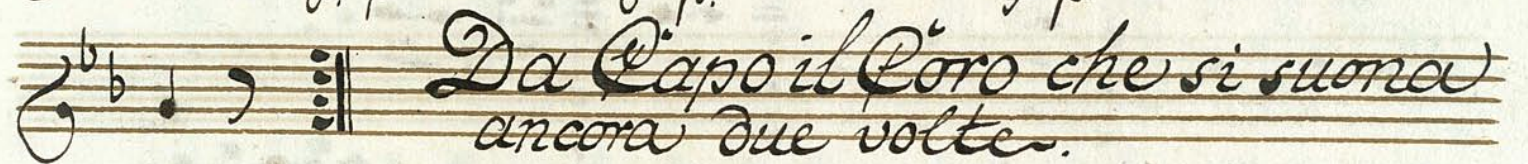 Da Capo il Coro che si suona
ancora due volte.